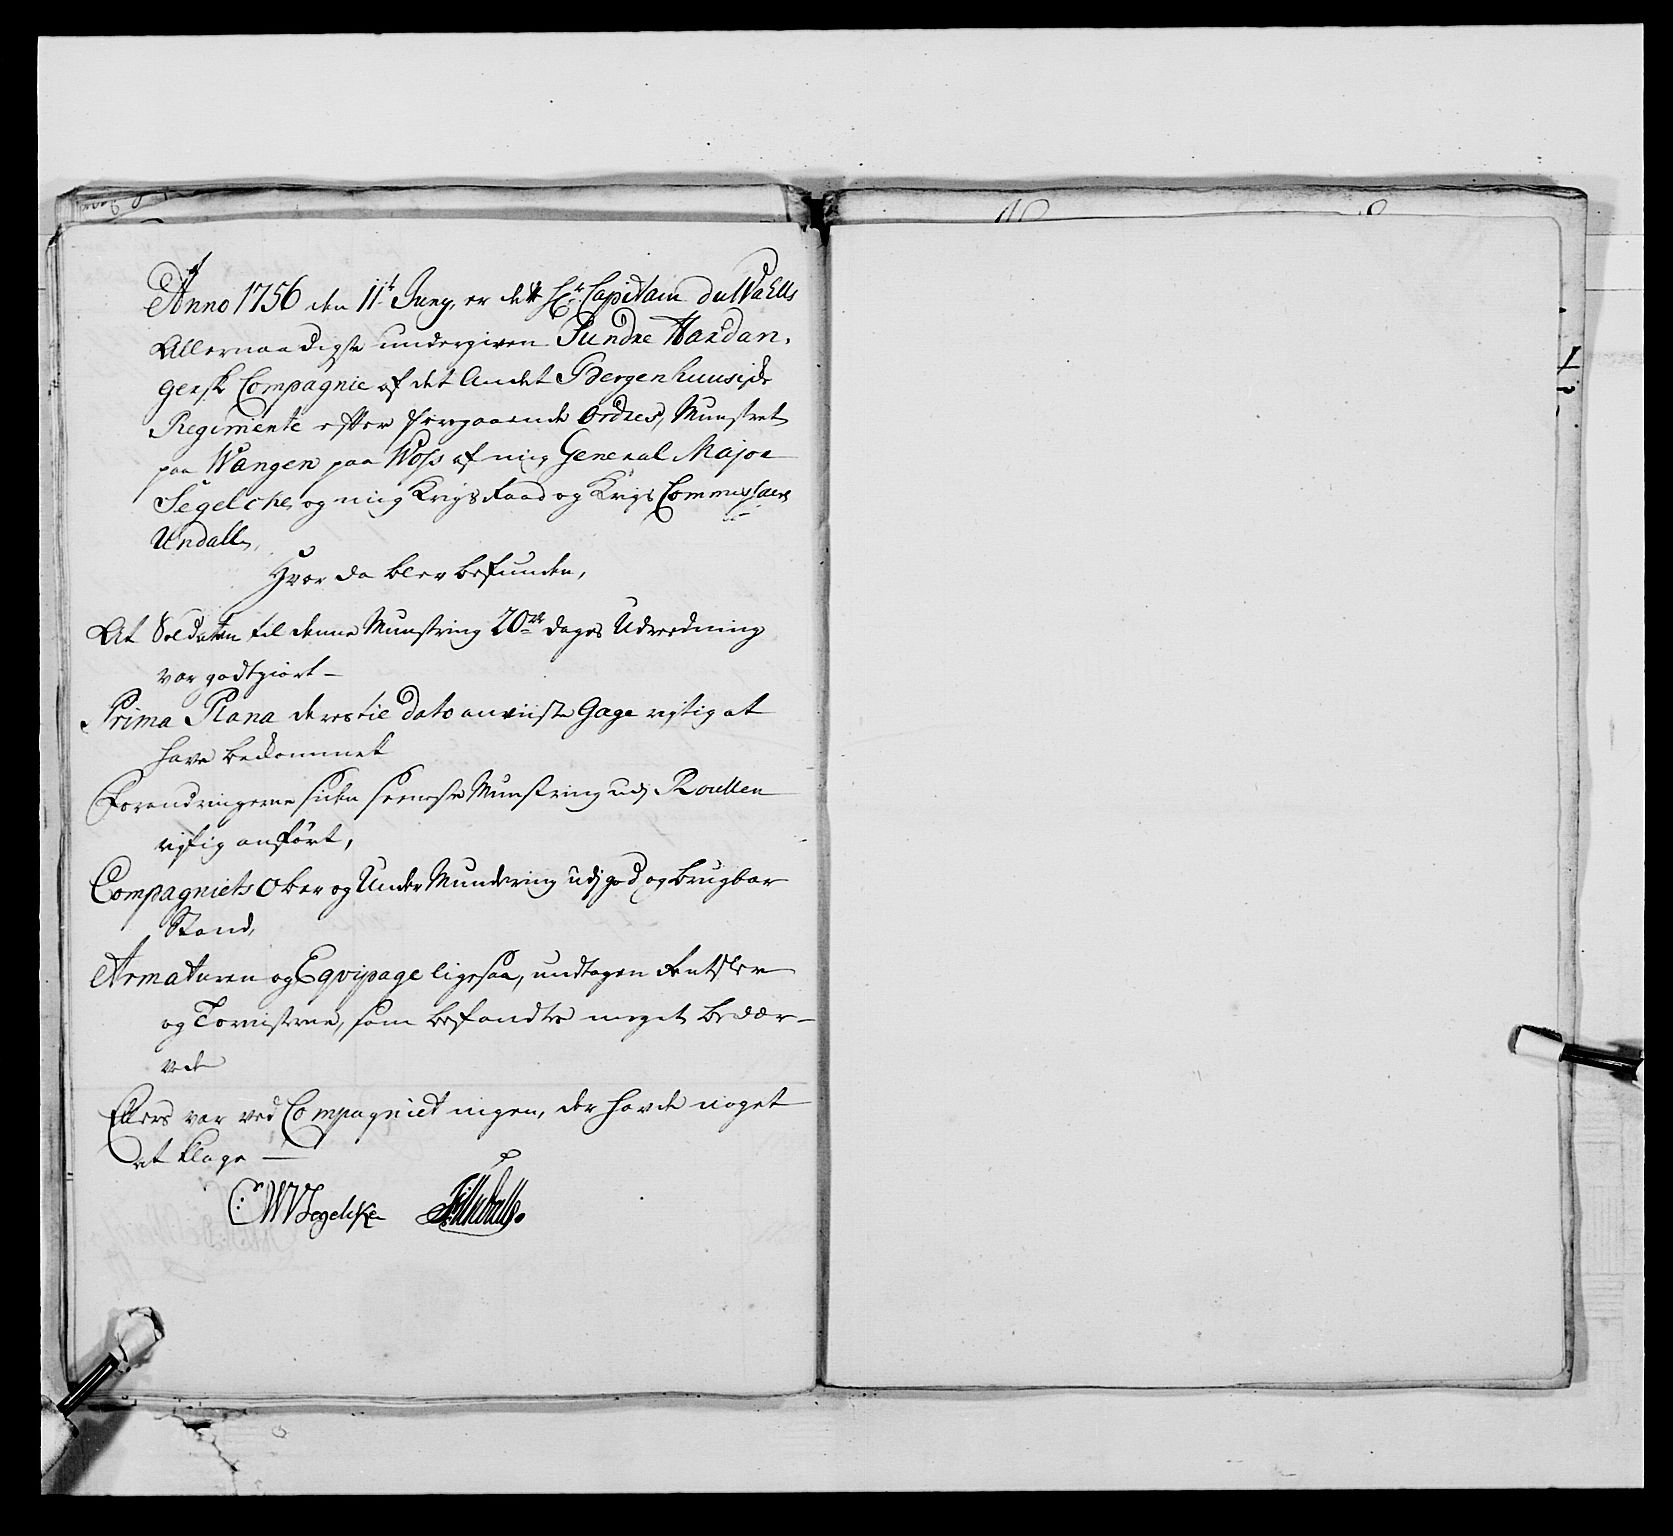 Anno 1756 den 11t Juny, er dett Hr Capitain du Wahls
Allernaadigst undergivene Sundre Hardan,
gersk Compagnie af det Andet Bergenhuusiske
Regimente efter foregaaende Ordres, Munstret
paa Wangen paa Woss af mig General Major
Segelche, og mig Krigs Raad og Krigs Commissaire
Undall,
Hvor da blev befunden,
At Soldaten til denne Munstring 20de dages Udreedning
var godtgiort –
Prima Plana deres til Dato anviiste Gage rigtig at
have bekommet
Forandringerne siden seeneste Munstring udj Roullen
rigtig anført,
Compagniets Over og Under Mundering udj god og brugbar
Stand,
Armaturen og Eqvipage ligesaa, undtagen
og Tornisterne, som befandtes meget bedær–
vede
Ellers var ved Compagniet ingen, der havde noget
at klage –
C: W V Segelcke